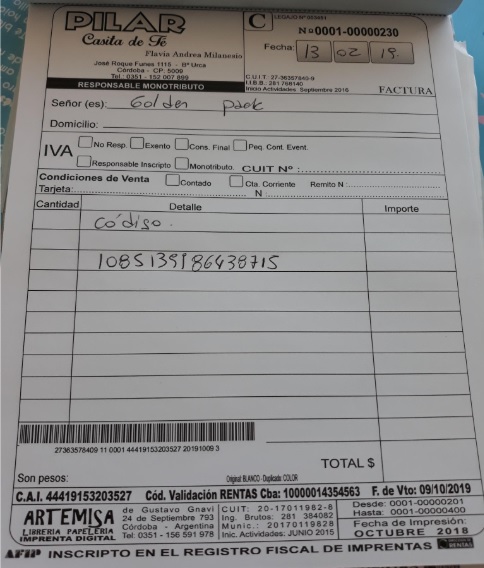 PILAR
Casita de Fé
Flavia Andrea Milanesio
José Roque Funes 1115 - Bº Urca
Córdoba - CP: 5009
Tel.: 0351 - 152 007 899
RESPONSABLE MONOTRIBUTO
C
LEGAJO Nº
Nº0001-00000230
Fecha: 13 02 19.
C.U.I.T: 27-36357840-9
I.I.B.B.: 281768140
Inicio Actividades: Septiembre 2016
FACTURA
Señor (es): Golden pack
Domicilio:
IVA
No Resp. Exento Cons. Final Peq. Cont. Event.
Responsable Inscripto Monotributo. CUIT Nº :
Condiciones de Venta Contado Cta. Corriente Remito N :
Tarjeta: N :
Cantidad Detalle Importe
Código.
1085139186438715
27363578409 11 0001 44419153203527 20191009 3
TOTAL $
Son pesos:
Original BLANCO - Duplicado: COLOR
C.A.I. 44419153203527 Cód. Validación RENTAS Cba: 10000014354563 F. de Vto: 09/10/2019
ARTEMISA
LIBRERIA PAPELERIA
IMPRENTA DIGITAL
de Gustavo Gnavi
24 de Septiembre 793
Córdoba - Argentina
Tel: 0351 - 156 591 978
CUIT: 20-17011982-8
Ing. Brutos: 281 384082
Munic.: 20170119828
Inic. Actividades: JUNIO 2015
Desde: 0001-00000201
Hasta: 0001-00000400
Fecha de Impresión:
OCTUBRE 2018
AFIP INSCRIPTO EN EL REGISTRO FISCAL DE IMPRENTAS RENTAS